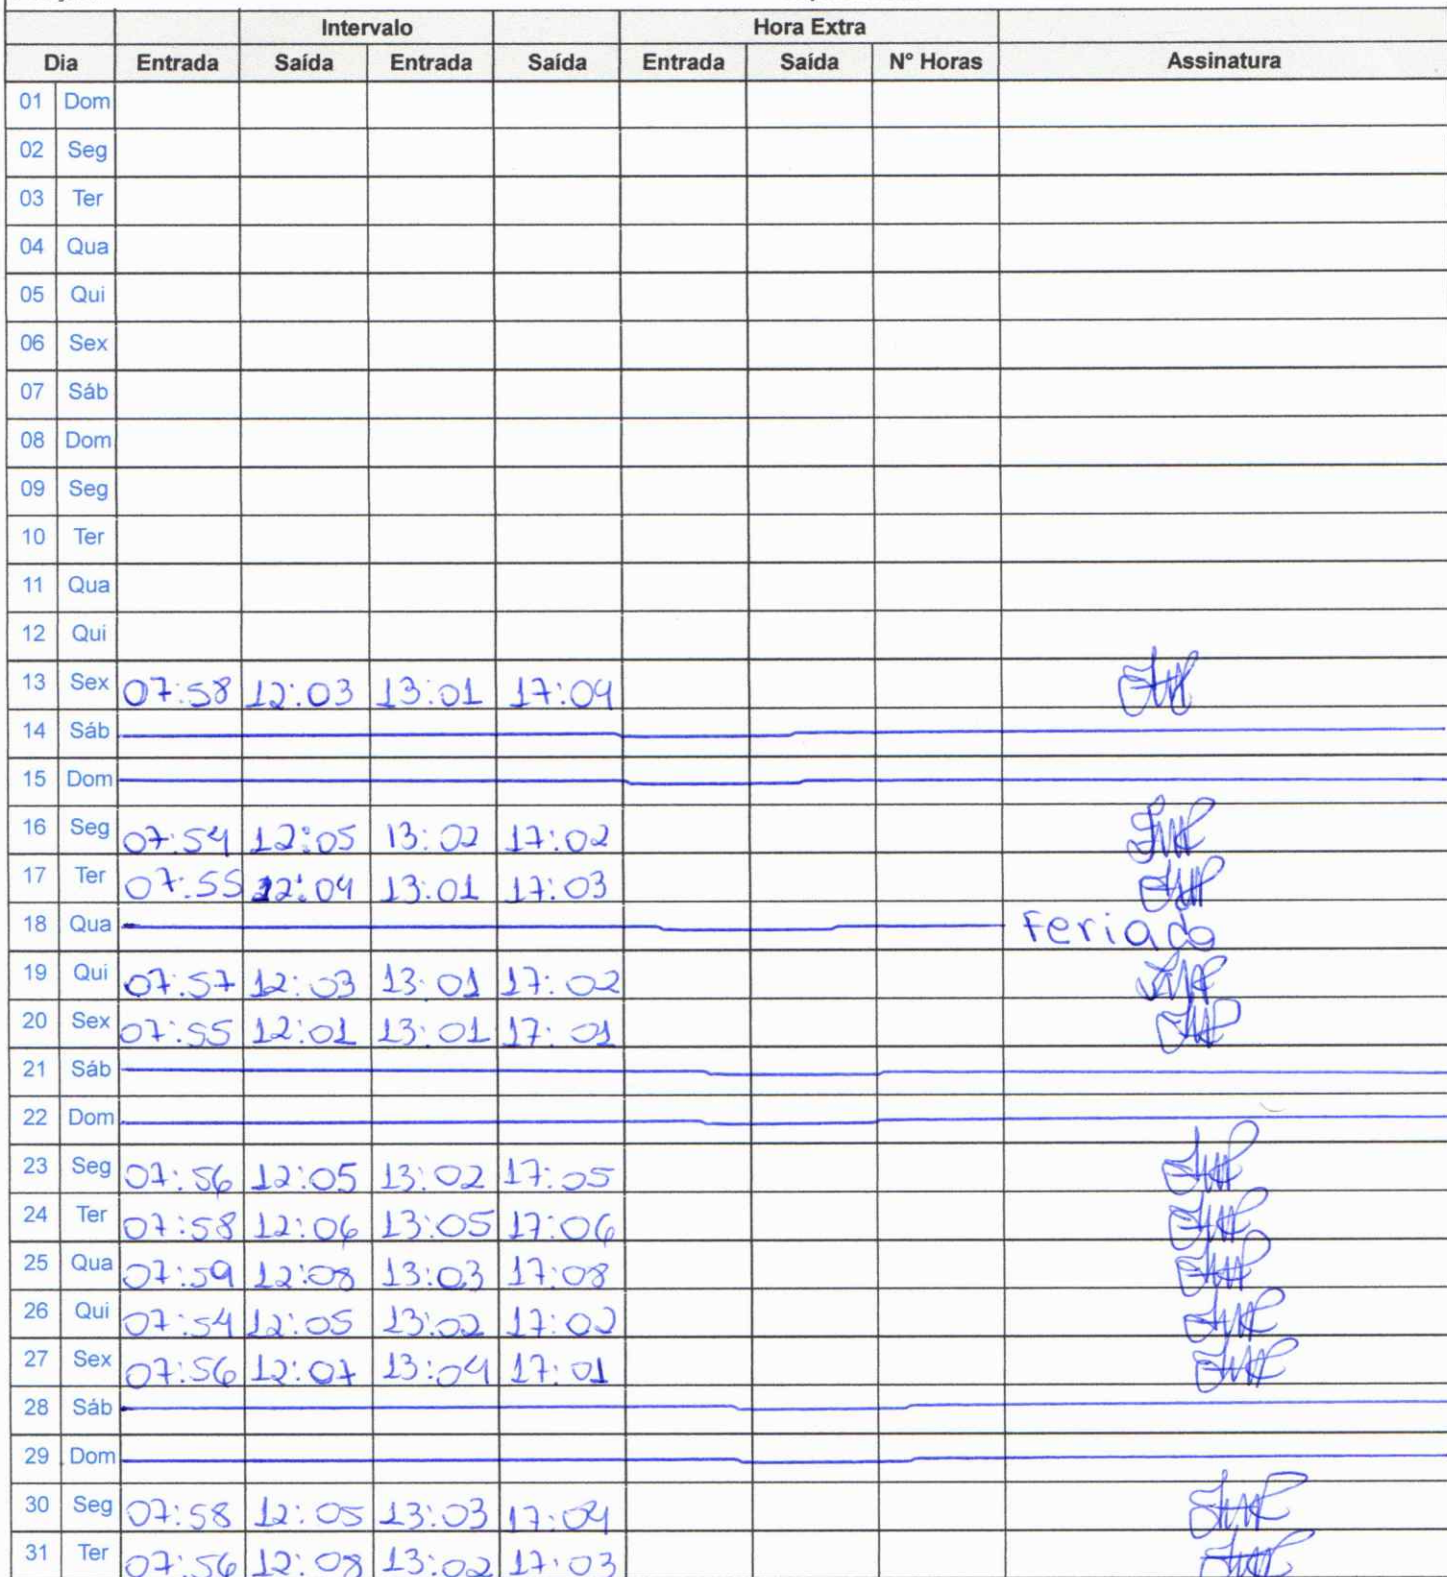 Intervalo Hora Extra
Dia Entrada Saída Entrada Saída Entrada Saída N° Horas Assinatura
01 Dom
02 Seg
03 Ter
04 Qua
05 Qui
06 Sex
07 Sáb
08 Dom
09 Seg
10 Ter
11 Qua
12 Qui
13 Sex 07:58 12:03 13:01 17:04
14 Sáb
15 Dom
16 Seg 07:54 12:05 13:02 17:02
17 Ter 07:55 12:04 13:01 17:03
18 Qua Feriado
19 Qui 07:57 12:03 13:01 17:02
20 Sex 07:55 12:01 13:01 17:01
21 Sáb
22 Dom
23 Seg 07:56 12:05 13:02 17:05
24 Ter 07:58 12:06 13:05 17:06
25 Qua 07:59 12:08 13:03 17:08
26 Qui 07:54 12:05 13:02 17:02
27 Sex 07:56 12:07 13:04 17:01
28 Sáb
29 Dom
30 Seg 07:58 12:05 13:03 17:04
31 Ter 07:56 12:08 13:02 17:03